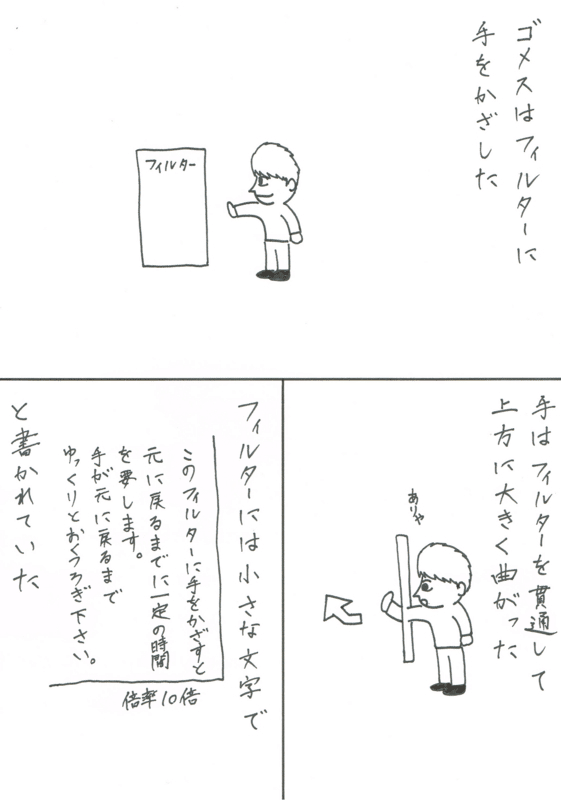 ゴメスはフィルターに
手をかざした
フィルター
手はフィルターを貫通して
上方に大きく曲がった
ありゃ
フィルターには小さな文字で
このフィルターに手をかざすと
元に戻るまでに一定の時間
を要します。
手が元に戻るまで
ゆっくりとおくつろぎ下さい。
倍率10倍
と書かれていた